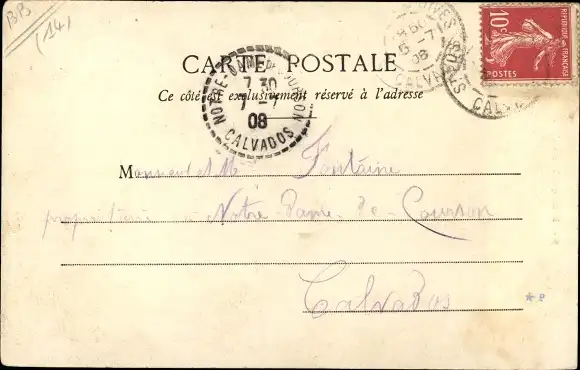 BB
(14)
10c
RÉPUBLIQUE FRANÇAISE
POSTES
CARTE POSTALE
Ce côté est exclusivement réservé à l'adresse
NOTRE-DAME-DE-COURSON
7 30
7 -7
08
CALVADOS
DIVES
5 -7
08
CALV
Monsieur et M Fontaine
propriétaire à Notre-Dame-de-Courson
Calvados